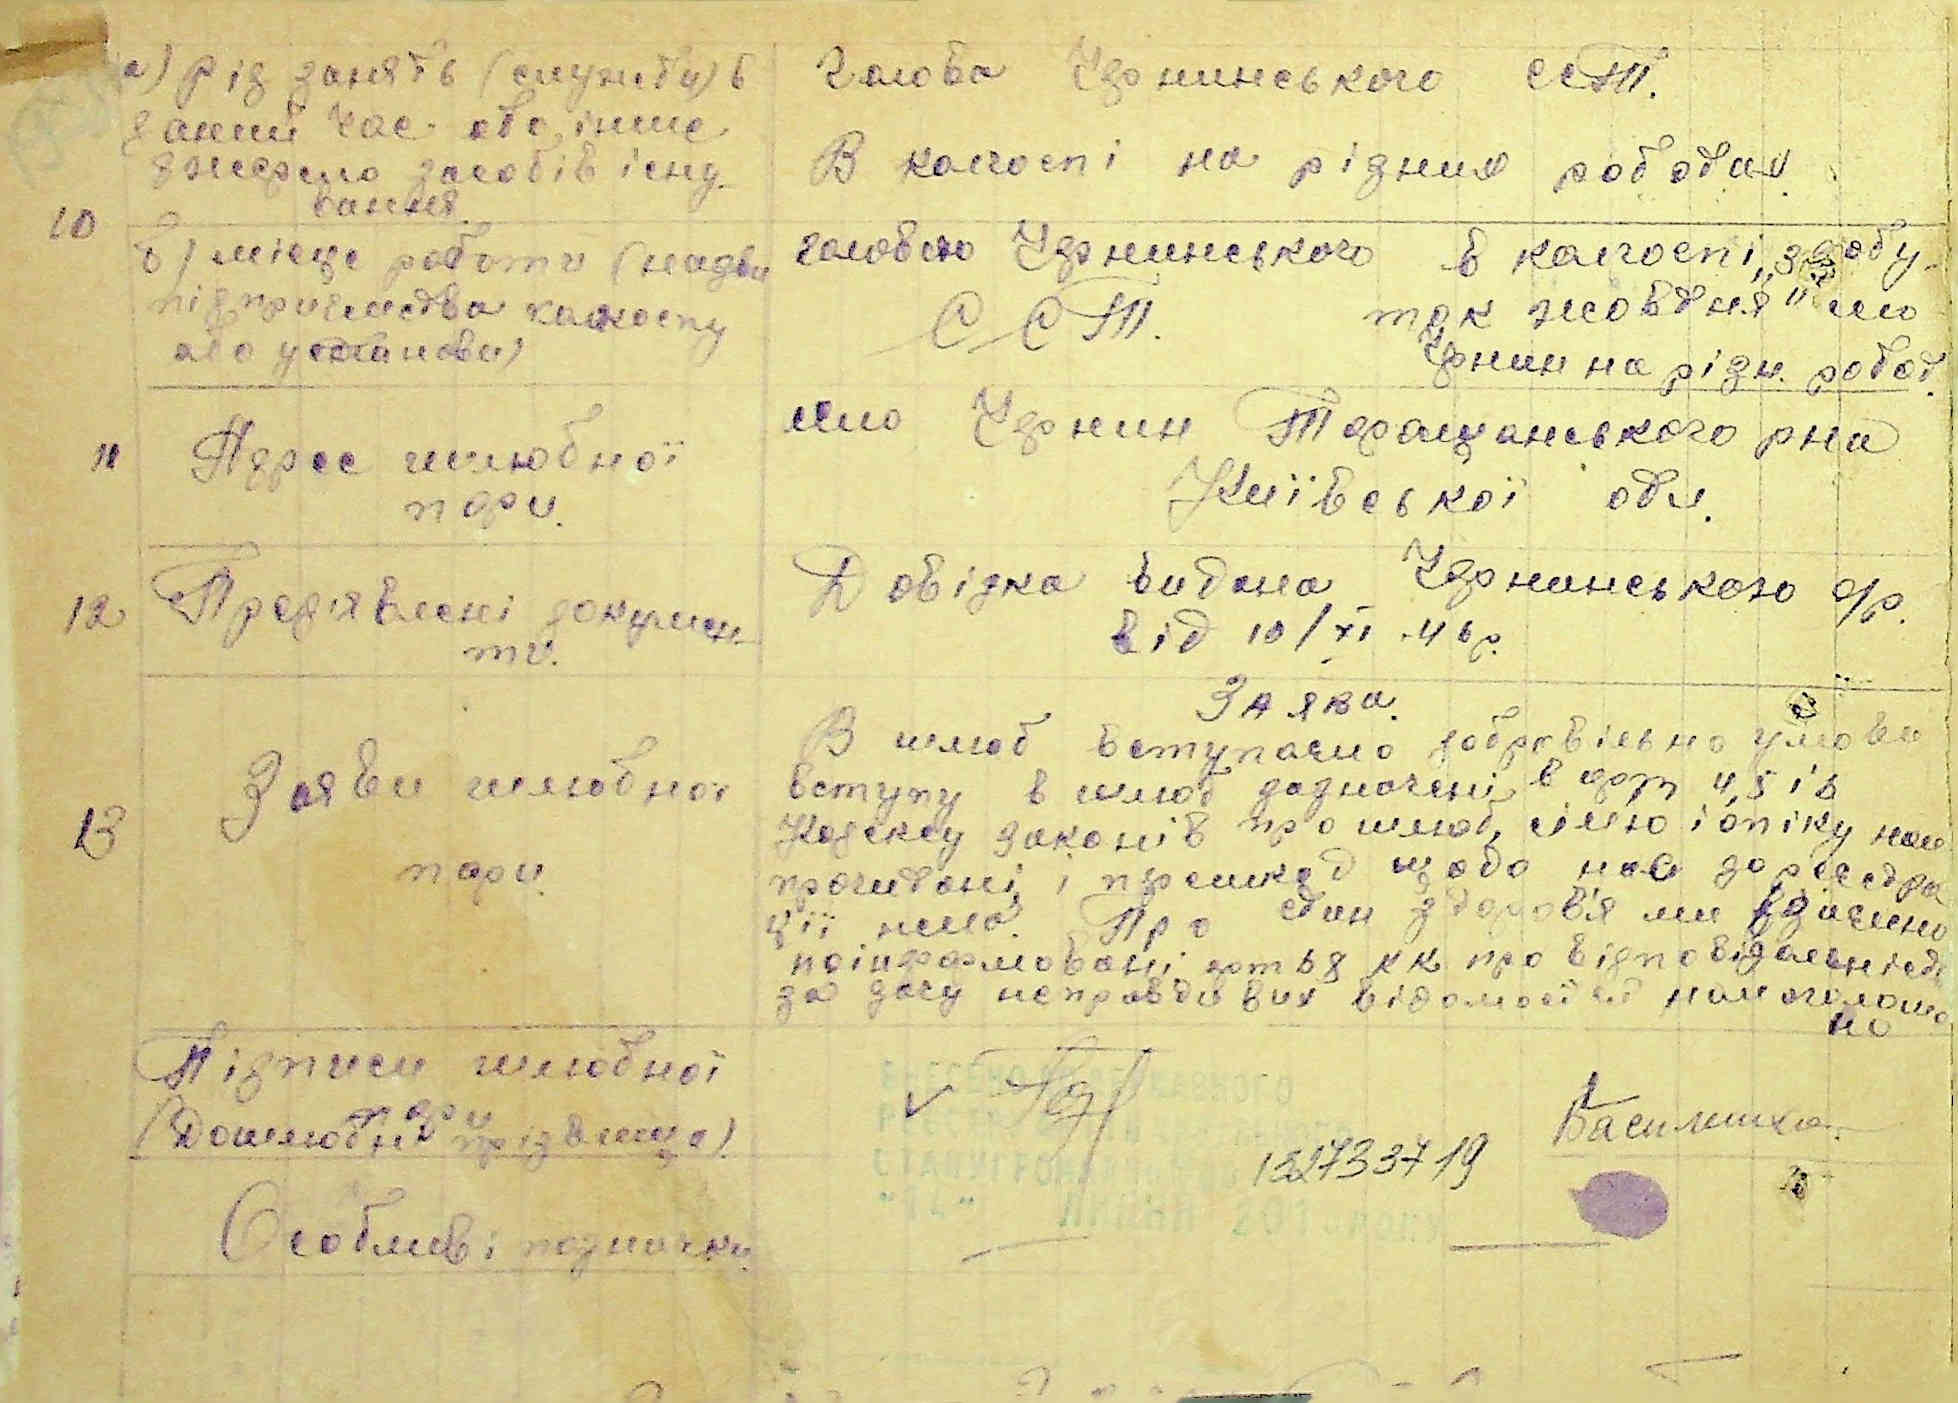 а) рід занять (служби) в
даний час або інше
джерело засобів існу
вання.
Голова Чернинського ССТ.
В колгоспі на різних роботах
10
б) місце роботи (назва
підприємства колгоспу
або установи)
головою Чернинського
ССТ.
в колгоспі „Здобу
ток жовтня" село
Чернин на різн. робот.
11
Адрес шлюбної
пари.
село Чернин Таращанського рна
Київської обл.
12
Пред'явлені докумен
ти.
Довідка видана Чернинського с/р.
від 10/XI 46р.
13
Заяви шлюбної
пари.
Заява.
В шлюб вступаємо добровільно умови
вступу в шлюб зазначені в арт 4, 5 і 6
Кодексу законів про шлюб, сім'ю і опіку нам
прочитані і перешкод щодо нас за реєстра
ції нема. Про стан здоров'я ми взаємно
поінформовані, арт 68 КК про відповідальність
за дачу неправдивих відомостей нам оголоше
но
Підписи шлюбної
пари
(Дошлюбні прізвища)
Василиха
132733719
Особливі позначки.